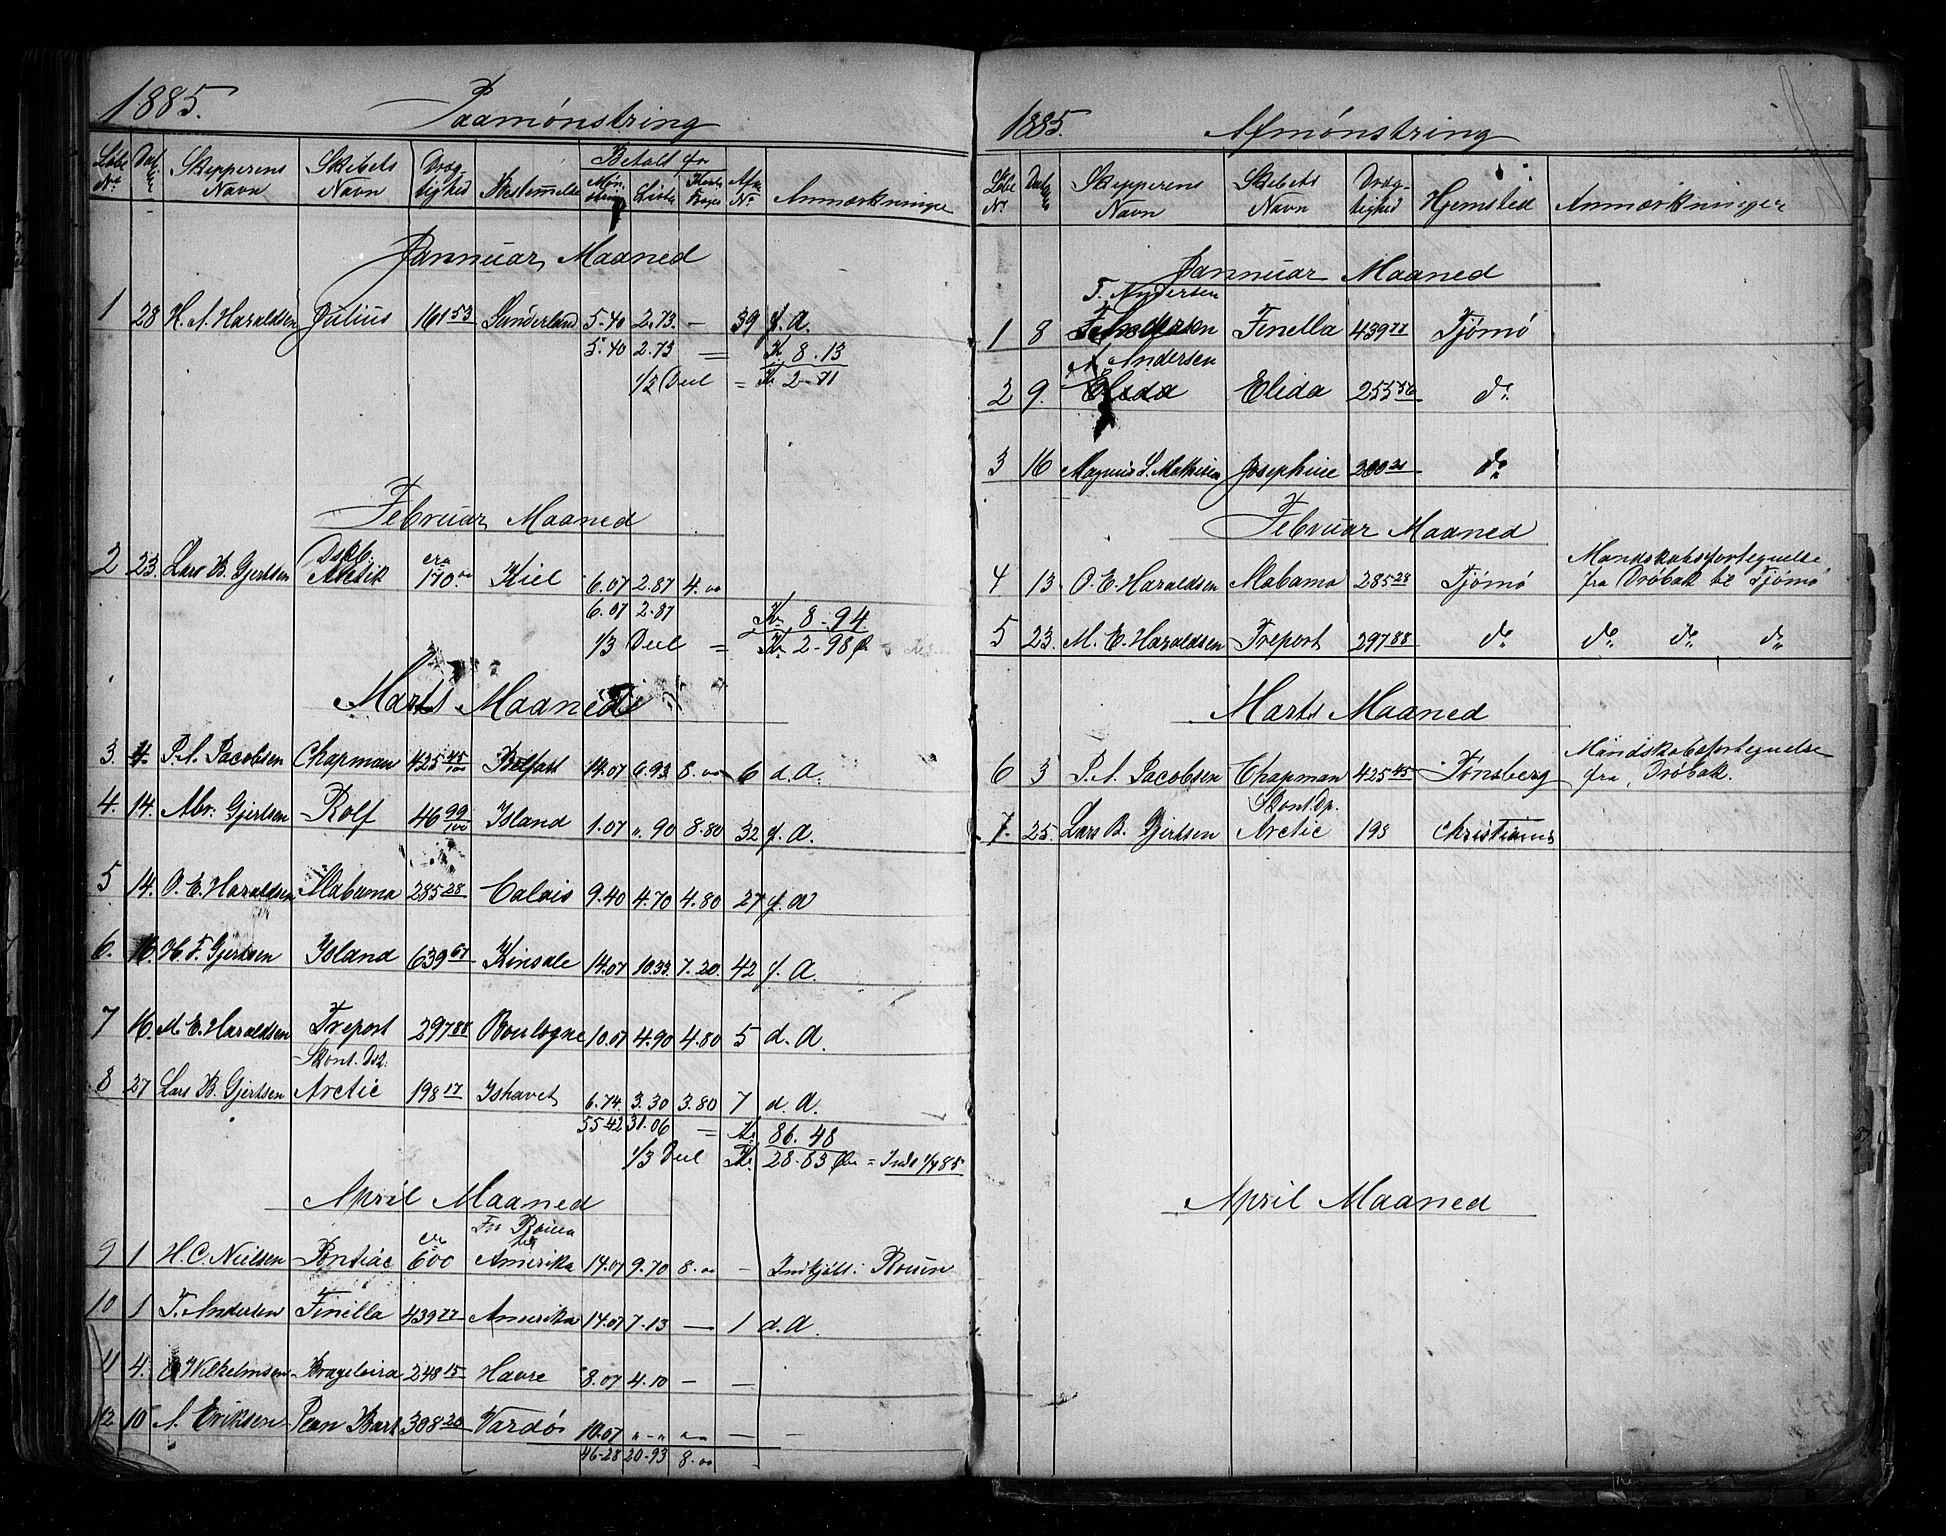 1885.
Paamønstring
Løbe No Dat Skipperens Navn Skibets Navn Dræg-tighed Bestemmelse Betalt for Møn-string Liste Afm No Anmærkninger
Jannuar Maaned
1 28 H. A. Haraldsen Julius 161 53 Sunderland 5.40 2.73. — 39 f. A.
5.40 2.73 = Kr 8.13
1/3 Deel = Kr 2-71
Februar Maaned
2 23. Lars B. Gjertsen Dskb. Arctik cra 170.00 Kiel 6.07 2.87 4.00
6.07 2.87 Kr. 8-94
1/3 Deel = Kr 2-98 Ø
Marts Maaned
3. 4 P. A. Jacobsen Chapman 425 45/100 Belfast 14.07 6.93 8.00 6 d. A.
4. 14. Abr. Gjertsen Rolf 46 99/100 Island 1.07 ". 90 8.80 32 f. A.
5 14. O. E. Haraldsen Alabama 285 28 Calais 9.40 4.70 4.80 27 f. A
6. 16. H. F. Gjertsen Island 639 67 Kinsale 14.07 10.33 7.20. 42 f. A.
7 16. M. E. Haraldsen Treport 297 88 Boulogne 10.07 4.90 4.80 5 d. A.
8 27 Lars B. Gjertsen Skont. Dsk. Arctic 198 17 Ishavet 6.74. 3.30 3.80 7 d. A.
55 42 31.06 = Kr 86.48
1/3 Deel Kr 28.83 Øre = Inds 1/4 85
April Maaned
9 1 H. C. Nielsen Pontiac cra 600 Fra Rouen til Amerika 14.07 9.70 8.00 — Indkjøbt i Rouen
10 1 T. Andersen Finella 439 77 Amerika 14.07 7.13 — 1 d. A.
11 4. Wilhelmsen Drageloira 248 15 Havre 8.07 4.10 — —
12 10 A. Eriksen Jean Bart 308 20 Vardø 10.07 "-" "" — —
46-28 20-93 8.00
1885.
Afmønstring
Løbe No Datum Skipperens Navn Skibets Navn Dræg-tighed Hjemsted Anmærkninger
Jannuar Maaned
T. Andersen
1 8 Finella 439 77 Tjømø
A. Andersen
2 9. Elida Elida 255 56 do.
3 16 Magnus S. Mathisen Josephine 200 21 do.
Februar Maaned
4 13. O. E. Haraldsen Alabama 285 28 Tjømø Mandskabsfortegnelse fra Drøbak til Tjømø
5 23. M. E. Haraldsen Treport 297 88 do. do. do. do.
Marts Maaned
6 3 P. A. Jacobsen Chapman 425 45 Tønsberg Mandskabsfortegnelse fra Drøbak.
7. 25. Lars B. Gjertsen Skont. Dp. Arctic 198 Christiania
April Maaned